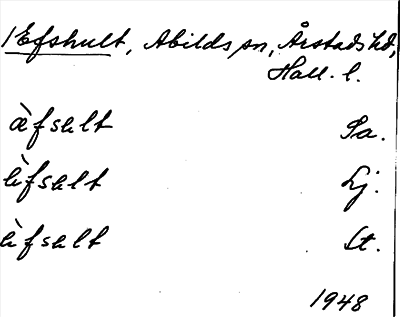 1 Efshult, Abilds sn, Årstads hd,
Hall. l.
æ̀fsəlt Sa.
æ̀fsəlt Lj.
æ̀fsəlt St.
1948